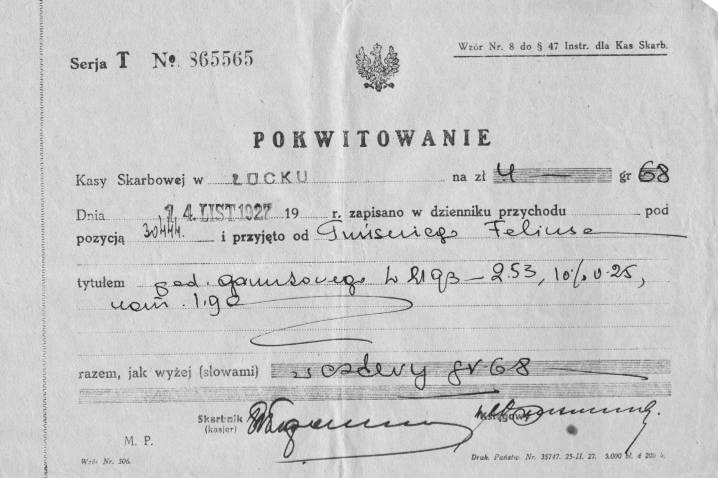 Serja T № 865565
Wzór Nr. 8 do § 47 Instr. dla Kas Skarb.
POKWITOWANIE
Kasy Skarbowej w ŁUCKU na zł 4 gr 68
Dnia 14 LIST 1927 19 r. zapisano w dzienniku przychodu pod
pozycją 30444. i przyjęto od Feliksa
tytułem pod. gruntowego 2.53, 10% 0.25,
1.90
razem, jak wyżej (słowami) cztery gr 68
Skarbnik
(kasjer)
Księgowy
M. P.
Wzór Nr. 306.
Druk. Państw. Nr. 35747. 25-II. 27. 5.000 bl. à 200 k.